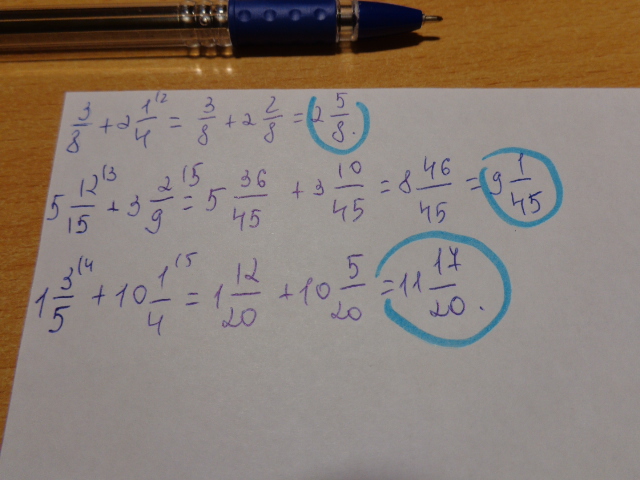 3/8 + 2 1/4 (2 = 3/8 + 2 2/8 = 2 5/8.
5 12/15 (3 + 3 2/9 (5 = 5 36/45 + 3 10/45 = 8 46/45 = 9 1/45
1 3/5 (4 + 10 1/4 (5 = 1 12/20 + 10 5/20 = 11 17/20.